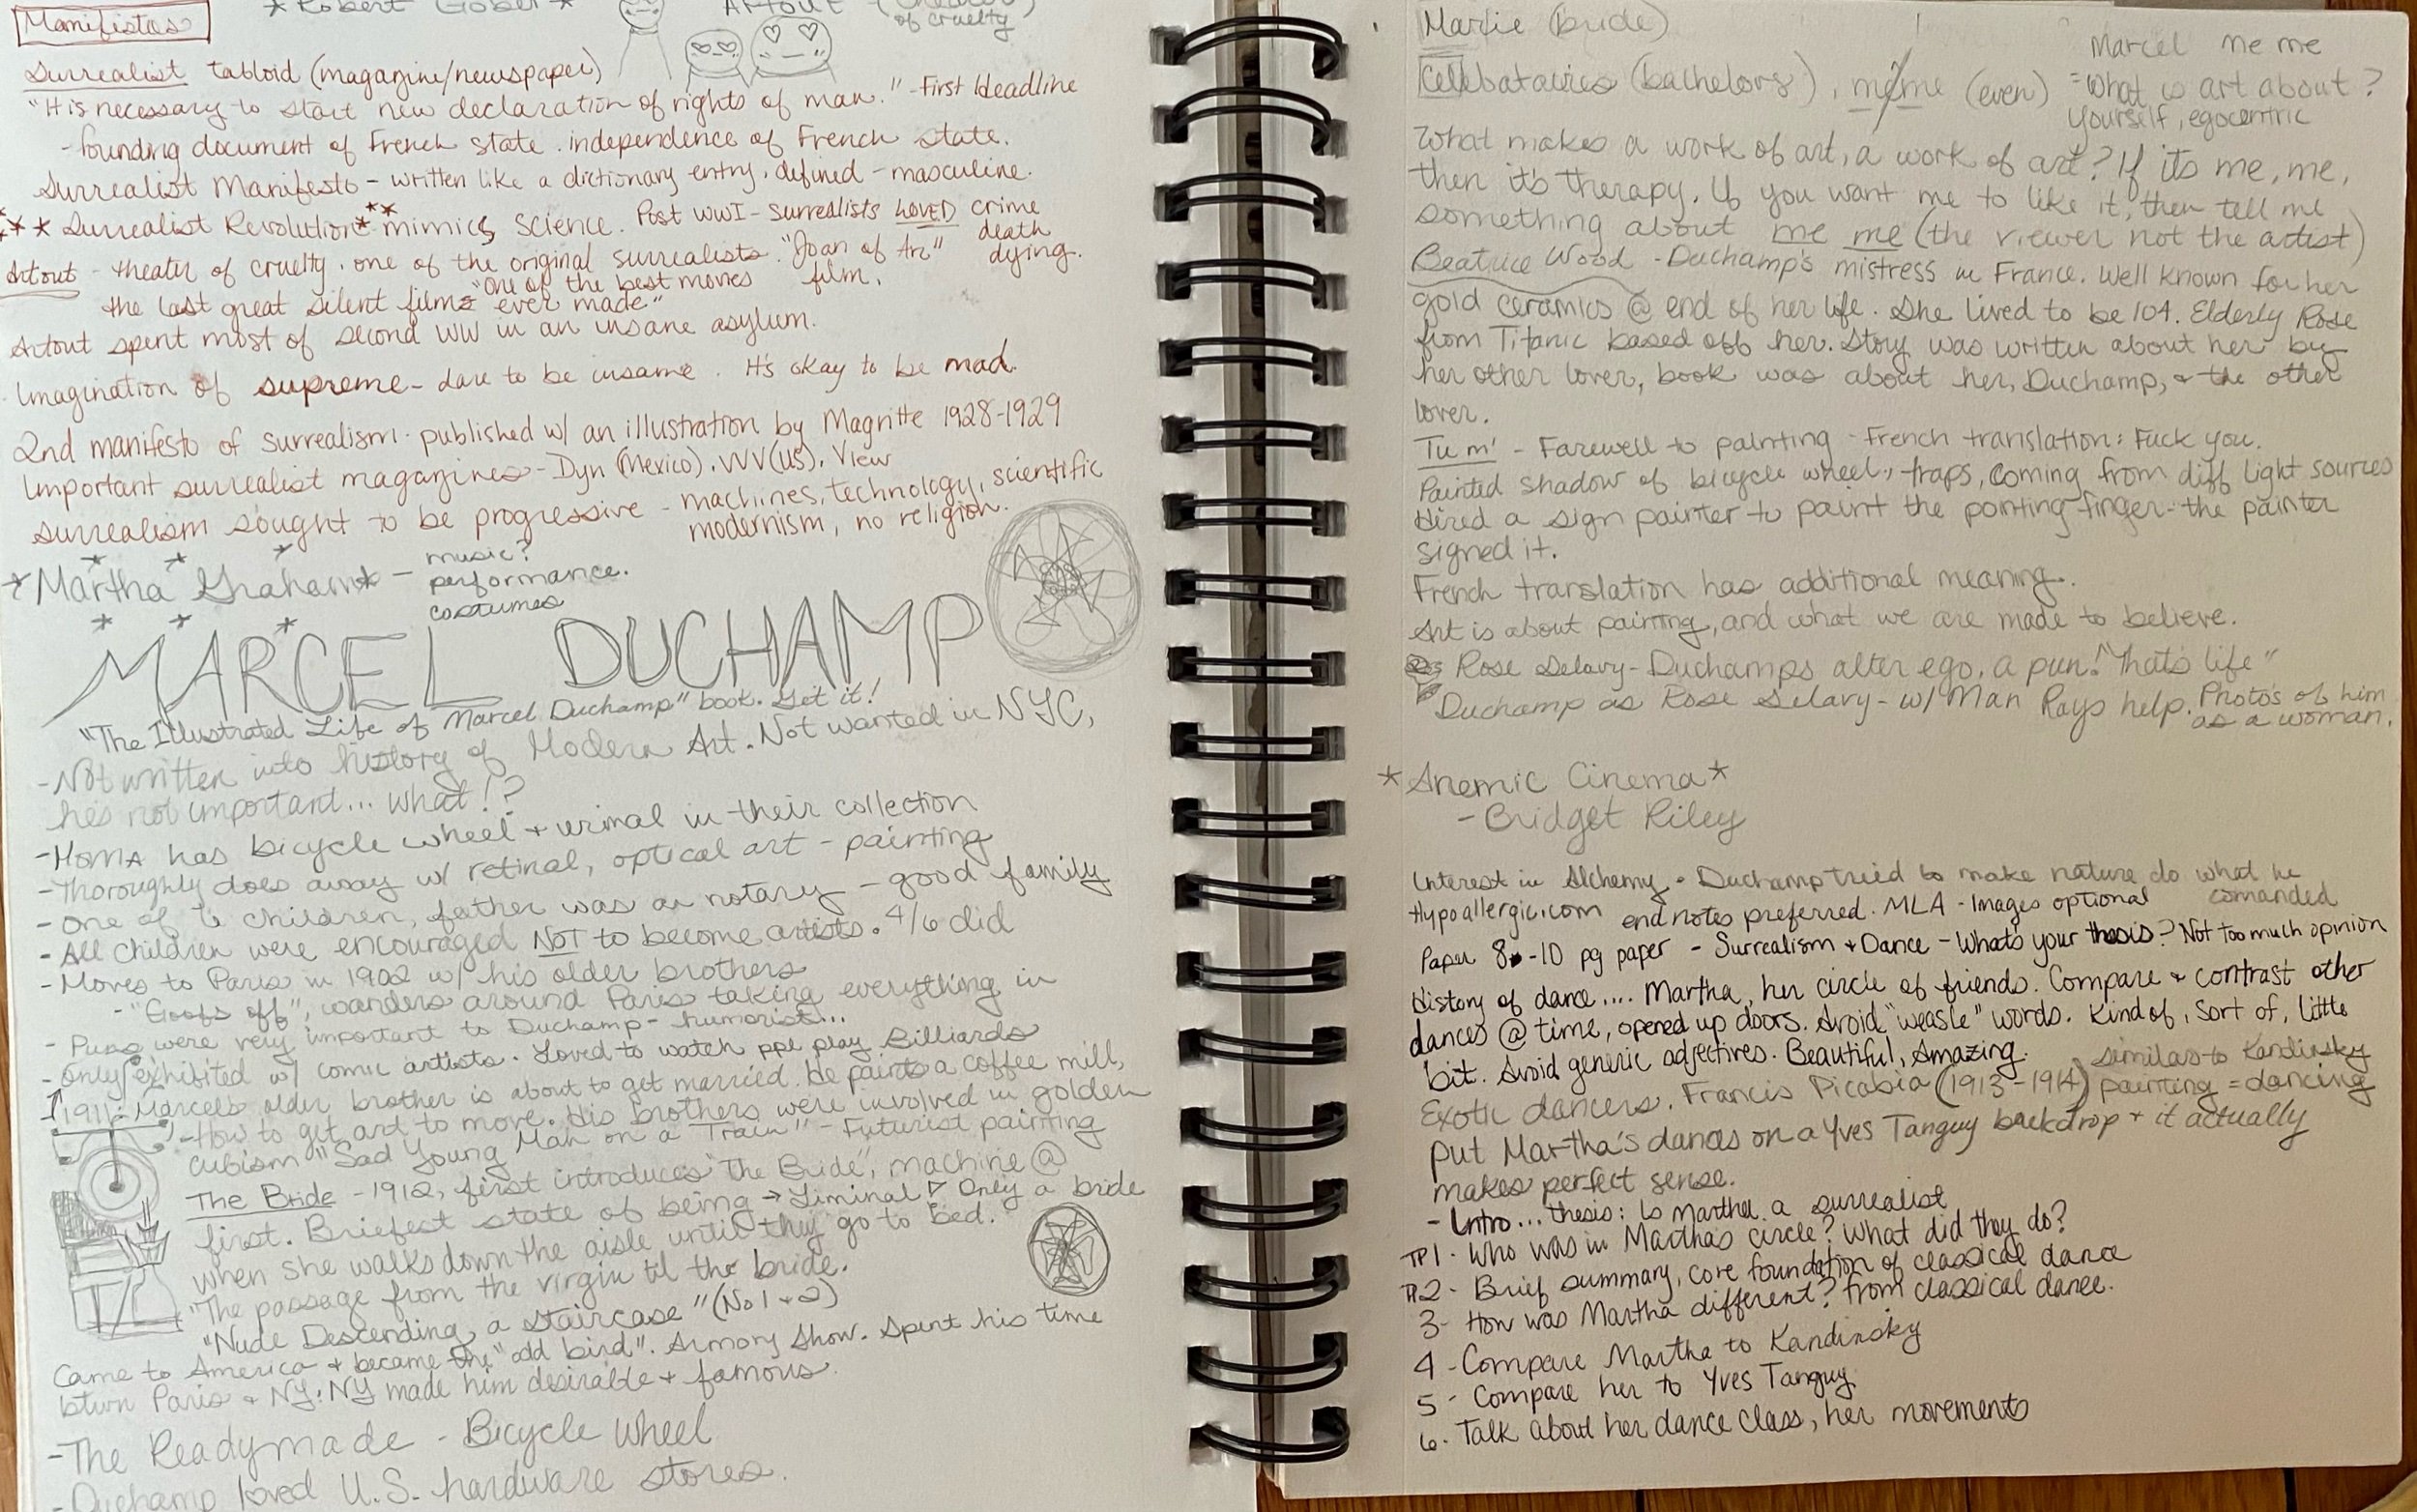 *Robert Gober*
Artout - (theater of cruelty)
Manifestos
Surrealist tabloid (magazine/newspaper)
"It is necessary to start new declaration of rights of man." - First Headline
- founding document of French state. independence of French state.
Surrealist Manifesto - written like a dictionary entry, defined - masculine.
*** Surrealist Revolution*** mimics science. Post WWI - Surrealists LOVED crime
death
dying.
Artout - theater of cruelty. one of the original surrealists. "Joan of Arc"
film.
"one of the best movies
the last great silent films ever made"
Artout spent most of second WW in an insane asylum.
Imagination of supreme - dare to be insame. It's okay to be mad.
2nd manifesto of surrealism. published w/ an illustration by Magritte 1928-1929
Important surrealist magazines - Dyn (Mexico), VVV (US), View
surrealism sought to be progressive - machines, technology, scientific
modernism, no religion.
*Martha Graham* - music?
performance.
costumes
MARCEL DUCHAMP
"The Illustrated Life of Marcel Duchamp" book. Get it!
- Not written into history of Modern Art. Not wanted in NYC,
he's not important... what!?
- MoMA has bicycle wheel + urinal in their collection
- Thoroughly does away w/ retinal, optical art - painting
- One of 6 children, father was a notary - good family
- All children were encouraged NOT to become artists. 4/6 did
- Moves to Paris in 1902 w/ his older brothers
- "Goofs off", wanders around Paris taking everything in
- Puns were very important to Duchamp - humorist...
- Only exhibited w/ comic artists. Loved to watch ppl play Billiards
1911: Marcel's older brother is about to get married. He paints a coffee mill,
- How to get art to move. His brothers were involved in golden
cubism "Sad Young Man on a Train" - Futurist painting
The Bride - 1912, first introduces "The Bride", machine @
first. Briefest state of being → Liminal. Only a bride
when she walks down the aisle until they go to bed.
"The passage from the virgin til the bride.
"Nude Descending a Staircase" (No 1 + 2)
Came to America + became the "odd bird". Armory Show. Spent his time
btwn Paris + NY. NY made him desirable + famous.
- The Readymade - Bicycle Wheel
- Duchamp loved U.S. hardware stores.
Marie (bride)
Celebataries (bachelors), même (even)
Marcel me me
=What is art about?
yourself, egocentric
What makes a work of art, a work of art? If its me, me,
then it's therapy. If you want me to like it, then tell me
something about me me (the viewer not the artist)
Beatrice Wood - Duchamp's mistress in France. Well known for her
gold ceramics @ end of her life. She lived to be 104. Elderly Rose
from Titanic based off her. Story was written about her by
her other lover, book was about her, Duchamp, + the other
lover.
Tu m' - Farewell to painting - French translation: Fuck you.
Painted shadow of bicycle wheel, traps, coming from diff light sources
Hired a sign painter to paint the pointing finger - the painter
signed it.
French translation has additional meaning.
Art is about painting, and what we are made to believe.
Rose Selavy - Duchamps alter ego, a pun! "That's life"
Duchamp as Rose Selavy - w/ Man Rays help. Photo's of him
as a woman.
*Anemic Cinema*
- Bridget Riley
Interest in Alchemy. Duchamp tried to make nature do what he
comanded
Hypoallergic.com end notes preferred. MLA - Images optional
Paper 8-10 pg paper - Surrealism + Dance - What's your thesis? Not too much opinion
History of dance.... Martha, her circle of friends. Compare + contrast other
dances @ time, opened up doors. Avoid "weasle" words. Kind of, Sort of, little
bit. Avoid generic adjectives. Beautiful, Amazing.
Exotic dancers. Francis Picabia (1913-1914) similar to Kandinsky
painting = dancing
Put Martha's dances on a Yves Tanguy backdrop + it actually
makes perfect sense.
- Intro... thesis: Is Martha a surrealist
TP1 - Who was in Martha's circle? What did they do?
TP2 - Brief summary, core foundation of classical dance
3 - How was Martha different? from classical dance.
4 - Compare Martha to Kandinsky
5 - Compare her to Yves Tanguy.
6. Talk about her dance class, her movements